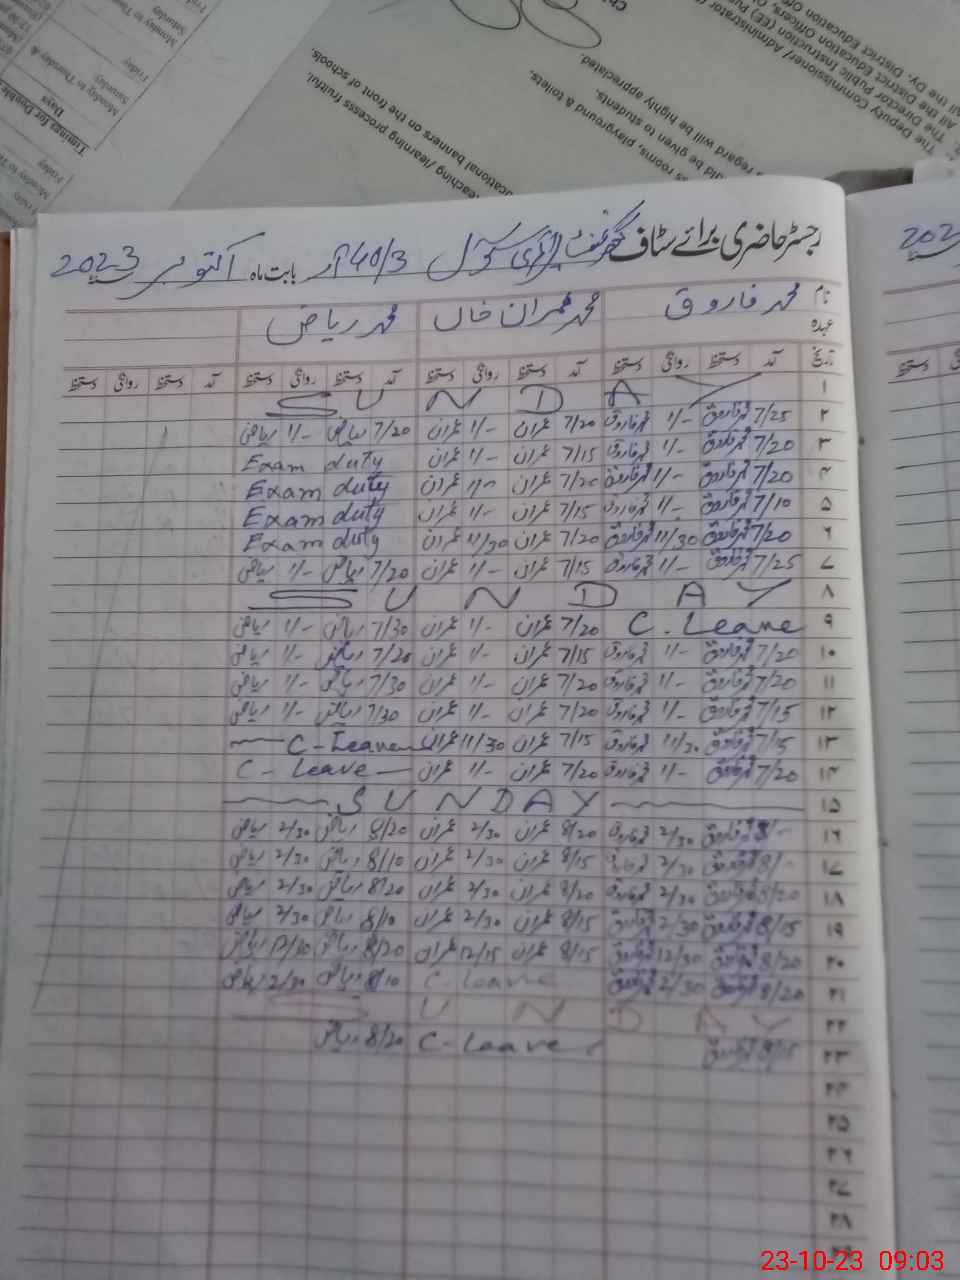 Timings for Double
Days
Monday to Thursday &
Saturday
Friday
Monday to Thursday
Saturday
Friday
educational banners on the front of schools
teaching /learning process fruitful.
rooms, playground & toilets.
be given to students.
regard will be highly appreciated.
The Deputy Commissioner/ Administrator
The Director Public Instruction (EE)
All the District Education Officers,
All the Dy. District Education
رجسٹر حاضری برائے سٹاف گورنمنٹ پرائمری سکول 40/3 آر بابت ماہ اکتوبر 2023
نام محمد فاروق محمد عمران خان محمد ریاض
عہدہ
تاریخ آمد دستخط روانگی دستخط آمد دستخط روانگی دستخط آمد دستخط روانگی دستخط آمد دستخط روانگی دستخط
۱ SUNDAY
۲ 7/25 محمد فاروق 1/- محمد فاروق 7/20 عمران 1/- عمران 7/20 ریاض 1/- ریاض
۳ 7/20 محمد فاروق 1/- محمد فاروق 7/15 عمران 1/- عمران Exam duty
۴ 7/20 محمد فاروق 1/- محمد فاروق 7/20 عمران 1/- عمران Exam duty
۵ 7/10 محمد فاروق 1/- محمد فاروق 7/15 عمران 1/- عمران Exam duty
۶ 7/20 محمد فاروق 11/30 محمد فاروق 7/20 عمران 11/30 عمران Exam duty
۷ 7/25 محمد فاروق 1/- محمد فاروق 7/15 عمران 1/- عمران 7/20 ریاض 1/- ریاض
۸ SUNDAY
۹ C. Leave 7/20 عمران 1/- عمران 7/30 ریاض 1/- ریاض
۱۰ 7/20 محمد فاروق 1/- محمد فاروق 7/15 عمران 1/- عمران 7/20 ریاض 1/- ریاض
۱۱ 7/20 محمد فاروق 1/- محمد فاروق 7/20 عمران 1/- عمران 7/30 ریاض 1/- ریاض
۱۲ 7/15 محمد فاروق 1/- محمد فاروق 7/20 عمران 1/- عمران 7/30 ریاض 1/- ریاض
۱۳ 7/15 محمد فاروق 11/30 محمد فاروق 7/15 عمران 11/30 عمران C-Leave
۱۴ 7/20 محمد فاروق 1/- محمد فاروق 7/20 عمران 1/- عمران C- Leave
۱۵ SUNDAY
۱۶ 8/- محمد فاروق 2/30 محمد فاروق 8/20 عمران 2/30 عمران 8/20 ریاض 2/30 ریاض
۱۷ 8/- محمد فاروق 2/30 محمد فاروق 8/15 عمران 2/30 عمران 8/10 ریاض 2/30 ریاض
۱۸ 8/20 محمد فاروق 2/30 محمد فاروق 8/20 عمران 2/30 عمران 8/20 ریاض 2/30 ریاض
۱۹ 8/15 محمد فاروق 2/30 محمد فاروق 8/15 عمران 2/30 عمران 8/10 ریاض 2/30 ریاض
۲۰ 8/20 محمد فاروق 12/30 محمد فاروق 8/15 عمران 12/15 عمران 8/20 ریاض ریاض
۲۱ 8/20 محمد فاروق 2/30 محمد فاروق C-Leave 8/10 ریاض 2/30 ریاض
۲۲ SUNDAY
۲۳ 8/15 محمد فاروق C-Leave 8/20 ریاض
۲۴
۲۵
۲۶
۲۷
۲۸
۲۹
23-10-23 09:03